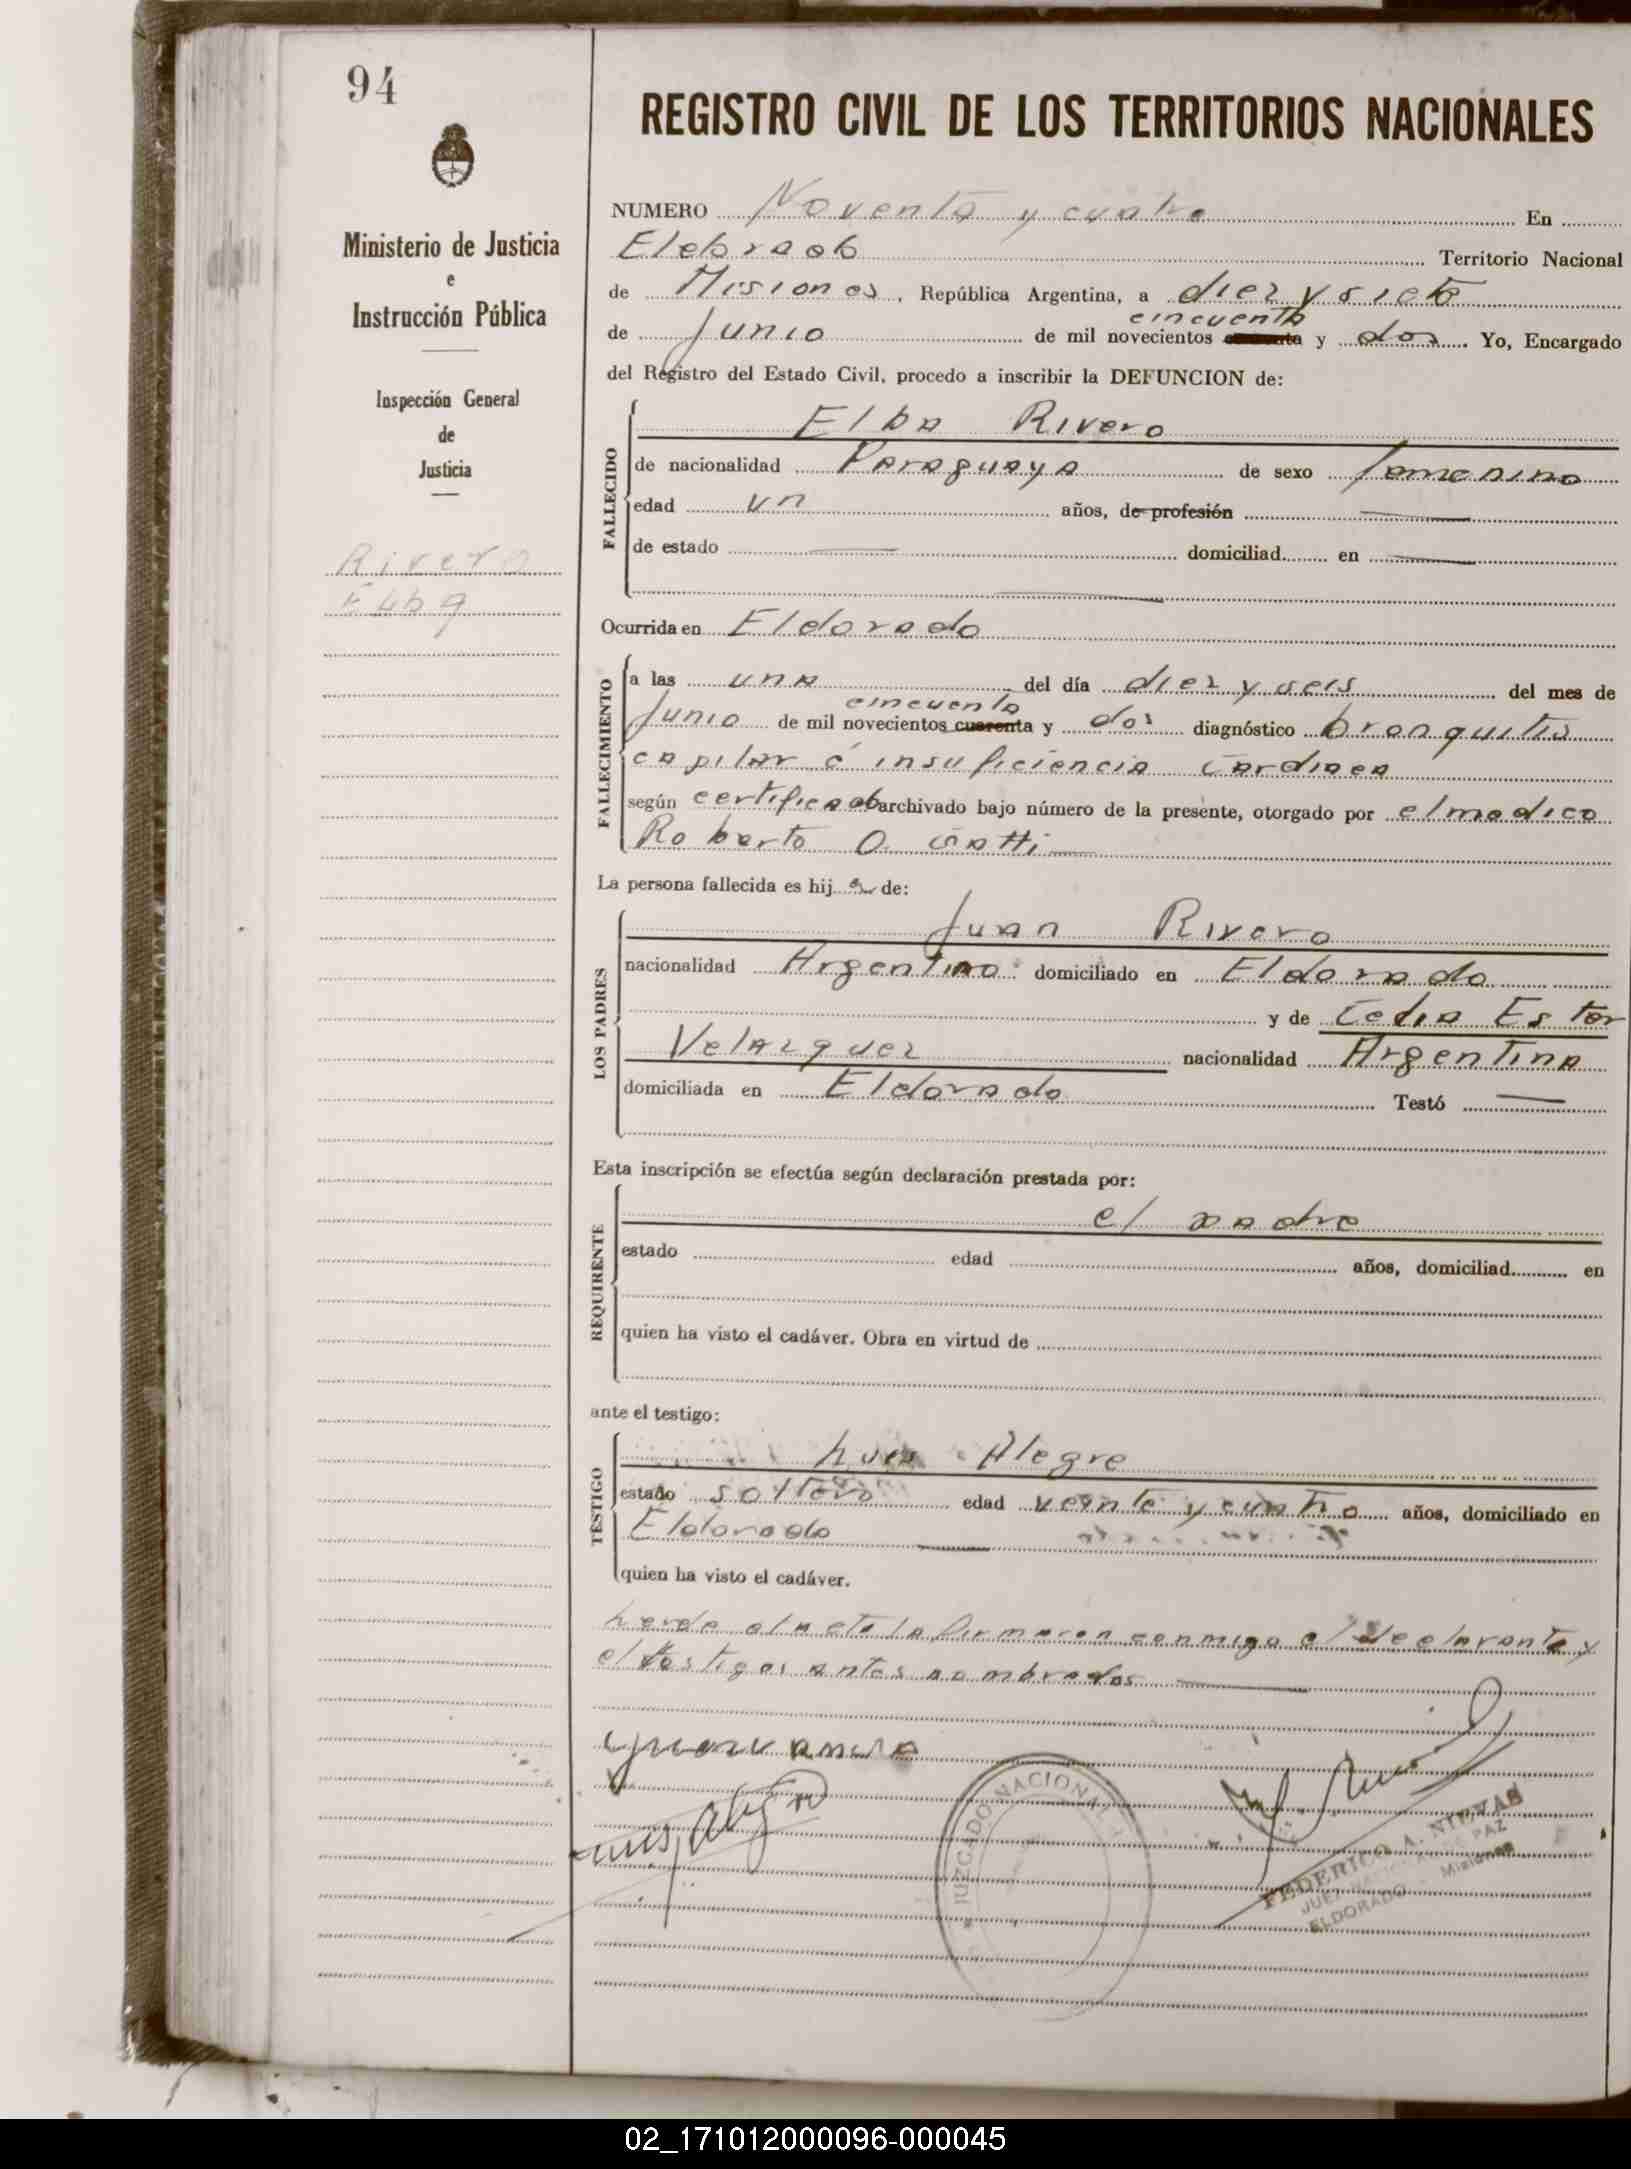 94
REGISTRO CIVIL DE LOS TERRITORIOS NACIONALES
Ministerio de Justicia
e
Instrucción Pública
Inspección General
de
Justicia
Rivero
Elba
NUMERO Noventa y cuatro En
Eldorado Territorio Nacional
de Misiones, República Argentina, a diez y siete
cincuenta
de Junio de mil novecientos cuarenta y dos. Yo, Encargado
del Registro del Estado Civil, procedo a inscribir la DEFUNCION de:
FALLECIDO
Elba Rivero
de nacionalidad Paraguaya de sexo femenino
edad un años, de profesión
de estado domiciliad en
Ocurrida en Eldorado
FALLECIMIENTO
a las una del día diez y seis del mes de
cincuenta
Junio de mil novecientos cuarenta y dos diagnóstico bronquitis
capilar é insuficiencia cardiaca
según certificado archivado bajo número de la presente, otorgado por el medico
Roberto O. Gatti
La persona fallecida es hij a de:
LOS PADRES
Juan Rivero
nacionalidad Argentino domiciliado en Eldorado
y de Celia Ester
Velazquez nacionalidad Argentina
domiciliada en Eldorado Testó
Esta inscripción se efectúa según declaración prestada por:
REQUIRENTE
el padre
estado edad años, domiciliad en
quien ha visto el cadáver. Obra en virtud de
ante el testigo:
TESTIGO
Luis Alegre
estado soltero edad veinte y cuatro años, domiciliado en
Eldorado
quien ha visto el cadáver.
Leyda el acta la firmaron conmigo el declarante y
el testigos antes nombrados
Luis Alegre
JUZGADO NACIONAL
FEDERICO A. NIEVAS
JUEZ PAZ
ELDORADO - Misiones
02_171012000096-000045